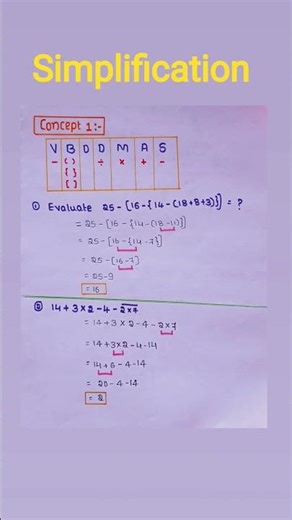 Simplification
Concept 1:-
V B O D M A S
– ( ) ÷ × + –
{ }
[ ]
① Evaluate 25-[16-{14-(18+8+3)}] = ?
= 25-[16-{14-(18-11)}]
= 25-[16-{14-7}]
= 25-[16-7]
= 25-9
= 16
② 14+3×2-4-2×7
= 14+3×2-4-2×7
= 14+3×2-4-14
= 14+6-4-14
= 20-4-14
= 2